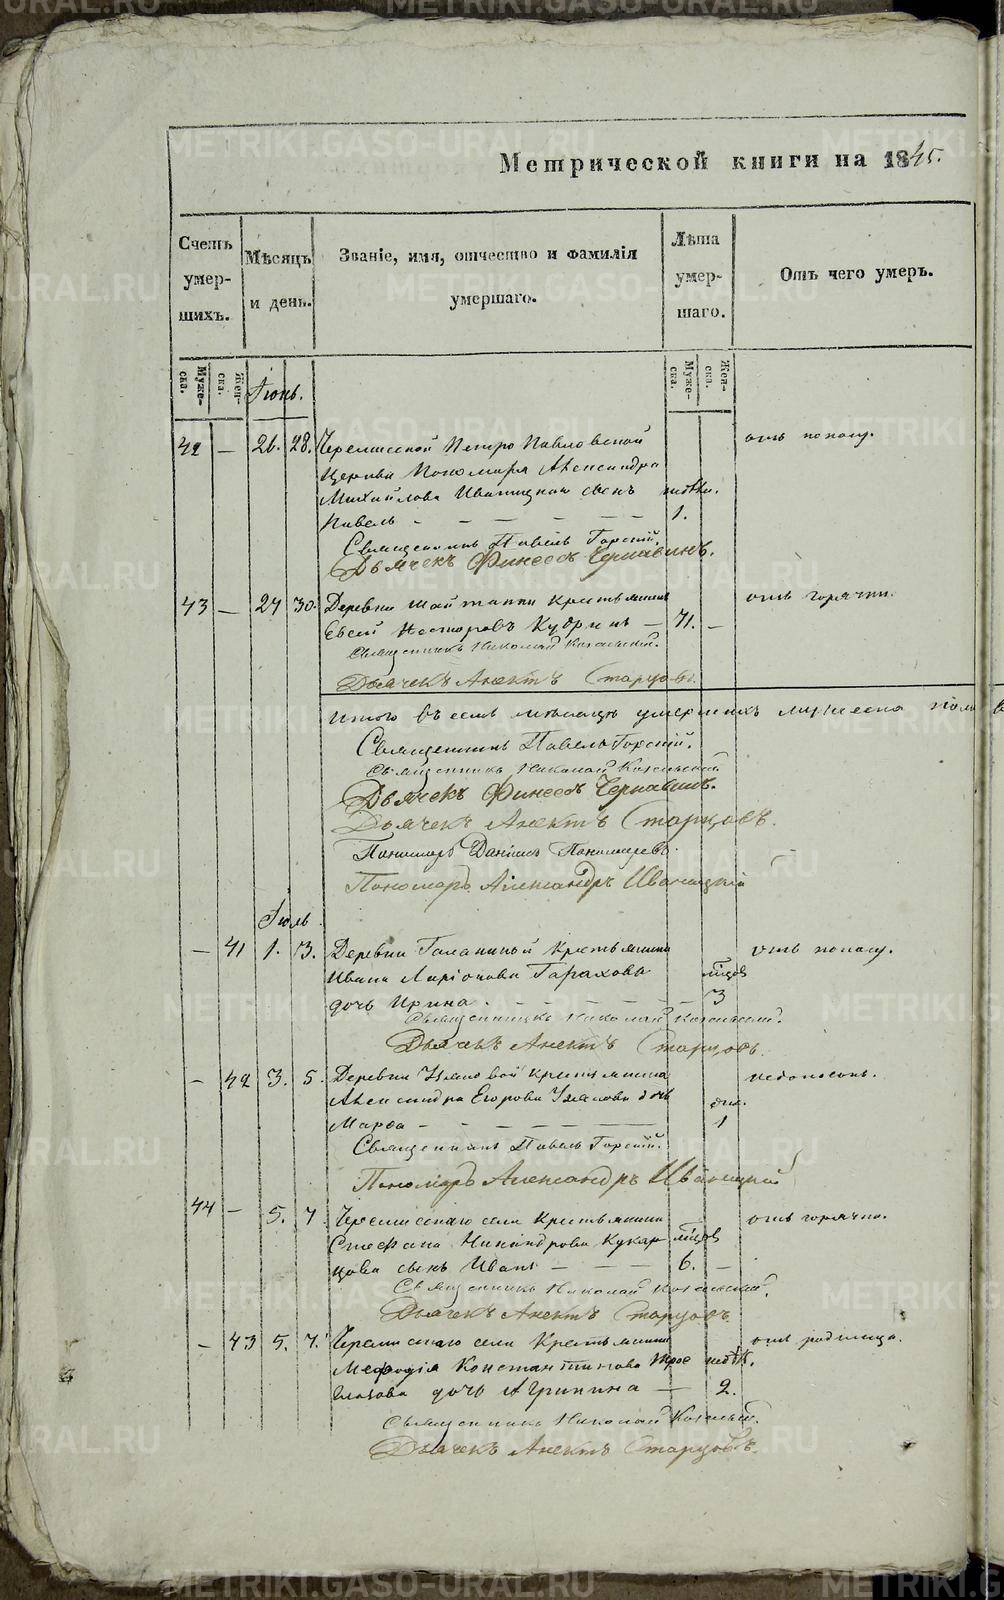 Метрической книги на 1845.
Счетъ умерших.
Мѣсяцъ и день.
Званіе, имя, отчество и фамилія умершаго.
Лѣта умершаго.
Отъ чего умеръ.
Мужеска. Женска.
Іюнь.
Мужеска. Женска.
42 — 26. 28. Черемисской Петро Павловской отъ поносу.
Церкви Пономаря Александра
Михайлова Иваницкаго сынъ недѣли.
Павелъ — — — — — 1.
Священникъ Павелъ Горскій.
Дьячекъ Финеесъ Чернавинъ.
43 — 27 30. Деревни Шайтанки крестьянинъ отъ горячки.
Евсей Несторовъ Кудринъ — 71. —
Священникъ Николай
Дьячекъ Старцовъ.
Итого въ семъ мѣсяцѣ умершихъ мужеска пола
Священникъ Павелъ Горскій.
Священникъ Николай
Дьячекъ Финеесъ Чернавинъ.
Дьячекъ Старцовъ.
Пономарь Даніилъ Пономаревъ.
Пономарь Александръ Иваницкій
Іюль
— 41 1. 3. Деревни Галаниной крестьянина отъ поносу.
Ивана Ларіонова мѣсяцов
дочь Ирина — — — — 3
Священникъ Николай
Дьячекъ Старцовъ.
— 42 3. 5. Деревни крестьянина недоносокъ.
Александра Егорова дочь дня.
Марѳа — — — — — 1
Священникъ Павелъ Горскій.
Пономарь Александръ Иваницкій
44 — 5. 7. Черемисскаго села крестьянина отъ горячки.
Стефана Никандрова Кукар мѣсяцов
цова сынъ Иванъ — — — 6. —
Священникъ Николай
Дьячекъ Старцовъ.
— 43 5. 7. Черемисскаго села крестьянина отъ родимца.
Меѳодія Константинова Трое недѣл.
глазова дочь Агрипина — 2.
Священникъ Николай
Дьячекъ Старцовъ.
METRIKI.GASO-URAL.RU